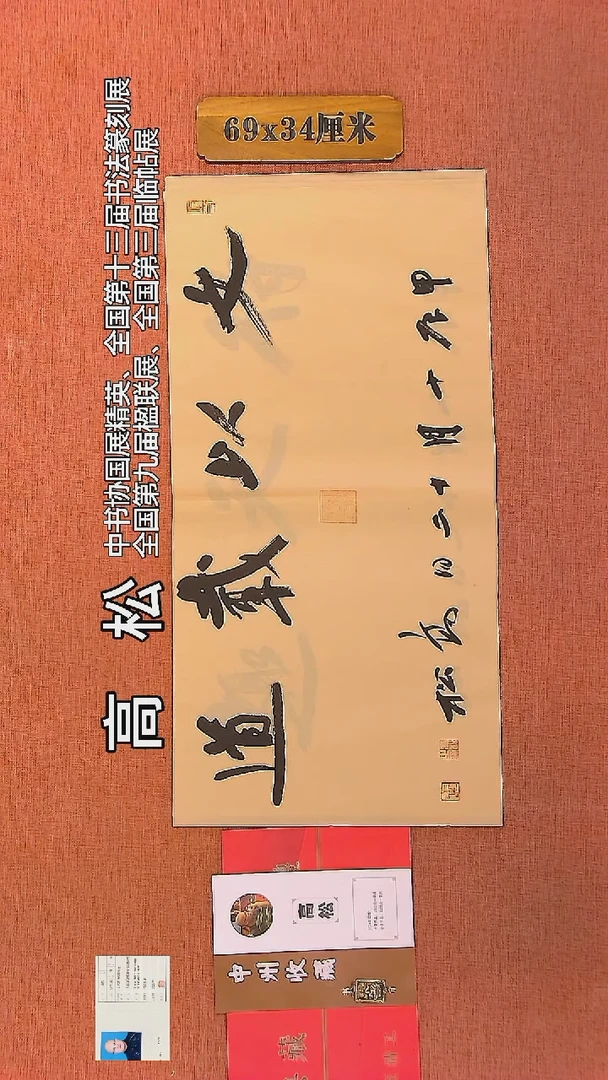 69x34厘米
高 松
中书协国展精英、全国第十三届书法篆刻展
全国第九届楹联展、全国第三届临帖展
文以載道
甲辰十月十二日高松
高松
中州收藏
藏